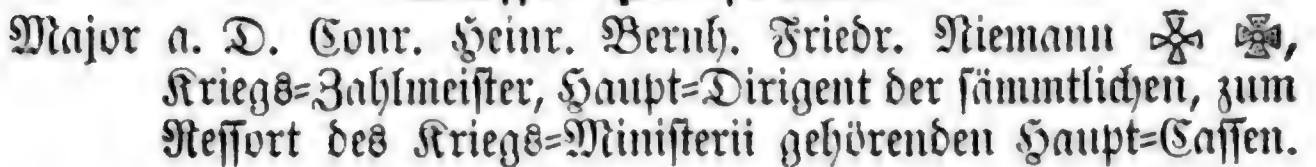 Major a. D. Conr. Heinr. Bernh. Friedr. Niemann ,
Kriegs=Zahlmeister, Haupt=Dirigent der sämmtlichen, zum
Ressort des Kriegs=Ministerii gehörenden Haupt=Cassen.